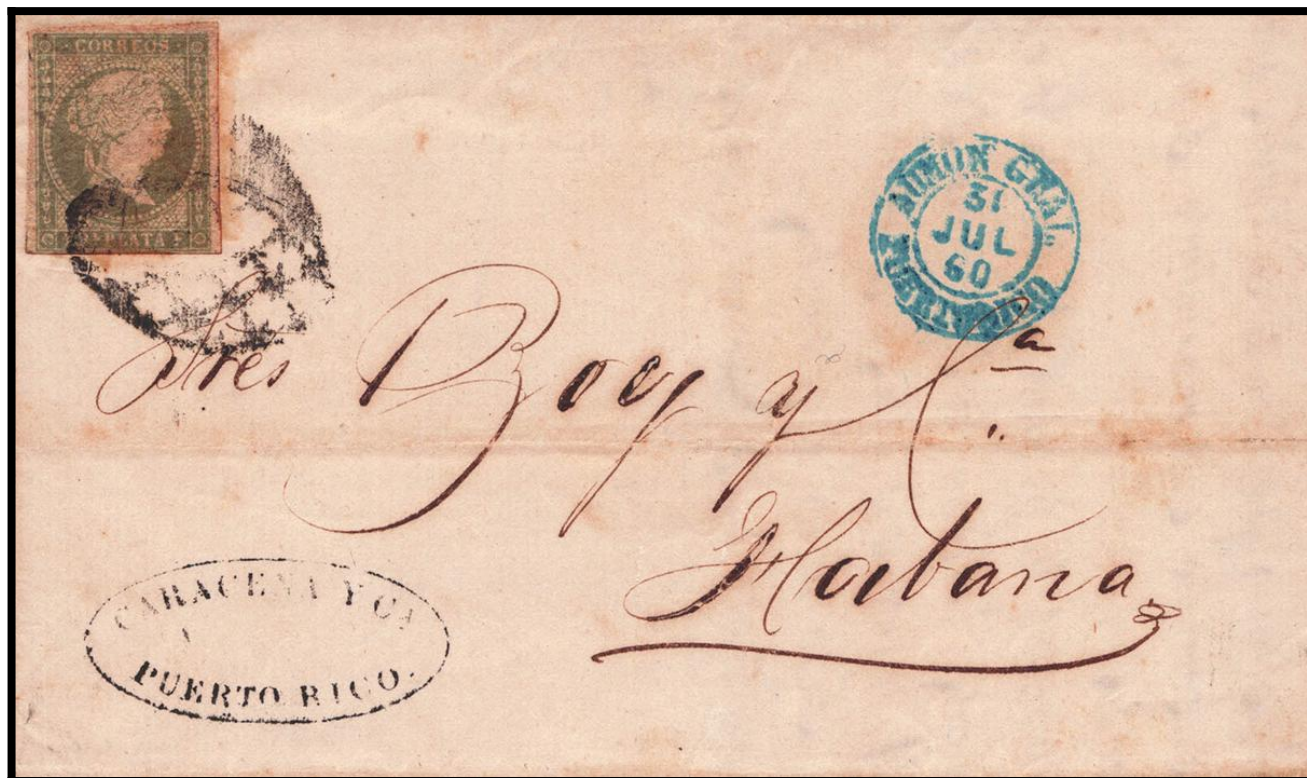 CORREOS
PLATA F.
ADMON GRAL
31
JUL
60
PUERTO-RICO
Sres Boy y Cª
Habana
CARACENA Y CA
PUERTO RICO.